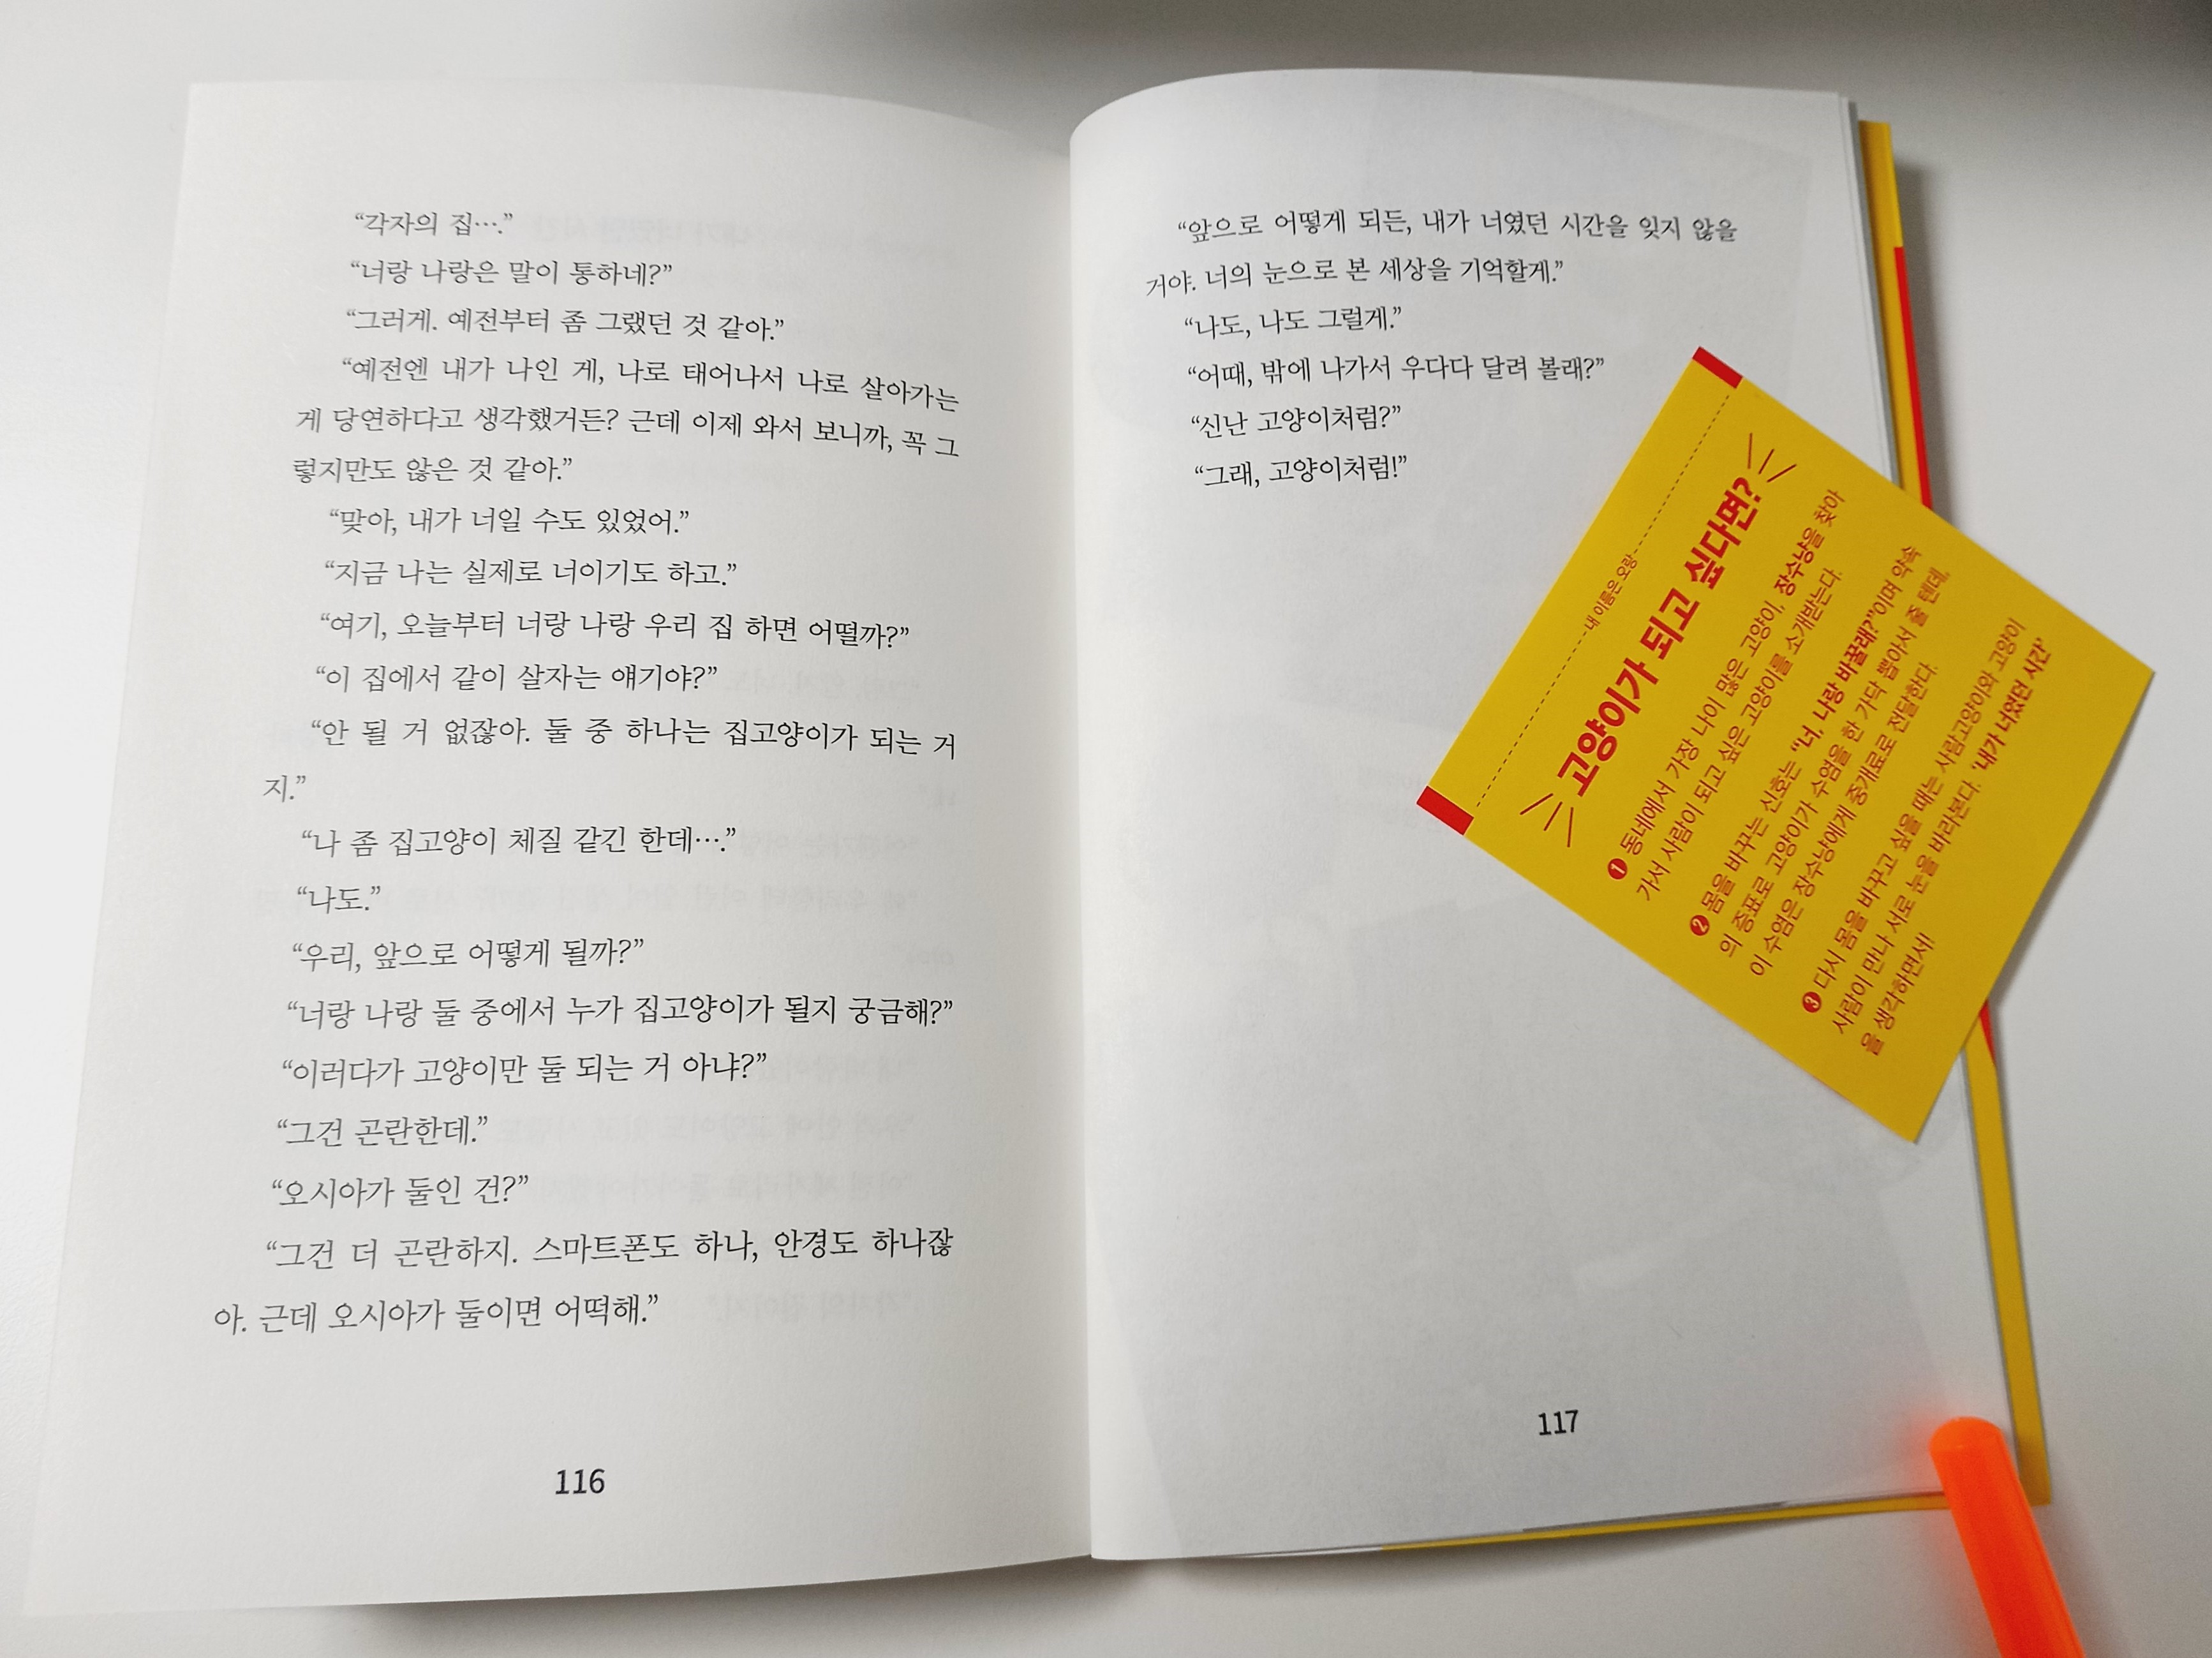 “각자의 집….”
“너랑 나랑은 말이 통하네?”
“그러게. 예전부터 좀 그랬던 것 같아.”
“예전엔 내가 나인 게, 나로 태어나서 나로 살아가는
게 당연하다고 생각했거든? 근데 이제 와서 보니까, 꼭 그
렇지만도 않은 것 같아.”
“맞아, 내가 너일 수도 있었어.”
“지금 나는 실제로 너이기도 하고.”
“여기, 오늘부터 너랑 나랑 우리 집 하면 어떨까?”
“이 집에서 같이 살자는 얘기야?”
“안 될 거 없잖아. 둘 중 하나는 집고양이가 되는 거
지.”
“나 좀 집고양이 체질 같긴 한데….”
“나도.”
“우리, 앞으로 어떻게 될까?”
“너랑 나랑 둘 중에서 누가 집고양이가 될지 궁금해?”
“이러다가 고양이만 둘 되는 거 아냐?”
“그건 곤란한데.”
“오시아가 둘인 건?”
“그건 더 곤란하지. 스마트폰도 하나, 안경도 하나잖
아. 근데 오시아가 둘이면 어떡해.”
116
“앞으로 어떻게 되든, 내가 너였던 시간을 잊지 않을
거야. 너의 눈으로 본 세상을 기억할게.”
“나도, 나도 그럴게.”
“어때, 밖에 나가서 우다다 달려 볼래?”
“신난 고양이처럼?”
“그래, 고양이처럼!”
117
내 이름은 오랑
고양이가 되고 싶다면?
❶ 동네에서 가장 나이 많은 고양이, 장수냥을 찾아
가서 사람이 되고 싶은 고양이를 소개받는다.
❷ 몸을 바꾸는 신호는 “너, 나랑 바꿀래?”이며 약속
의 증표로 고양이가 수염을 한 가닥 뽑아서 줄 텐데,
이 수염은 장수냥에게 중개료로 전달한다.
❸ 다시 몸을 바꾸고 싶을 때는 사람고양이와 고양이
사람이 만나 서로 눈을 바라본다. ‘내가 너였던 시간’
을 생각하면서!